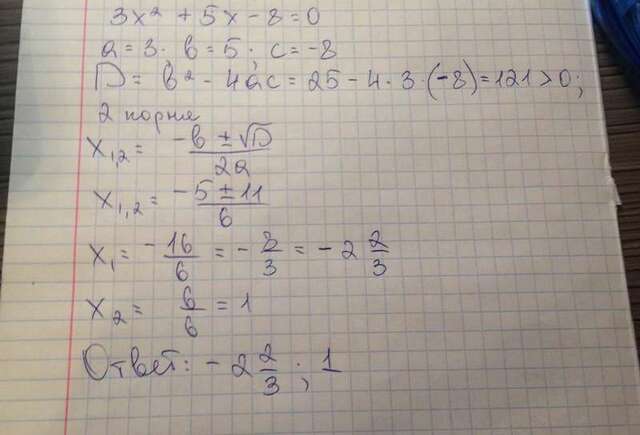 3x² + 5x - 8 = 0
a = 3; b = 5; c = -8
D = b² - 4ac = 25 - 4 · 3 · (-8) = 121 > 0;
2 корня
x₁,₂ = (-b ± √D)/2a
x₁,₂ = (-5 ± 11)/6
x₁ = -16/6 = -8/3 = -2 2/3
x₂ = 6/6 = 1
Ответ: -2 2/3; 1